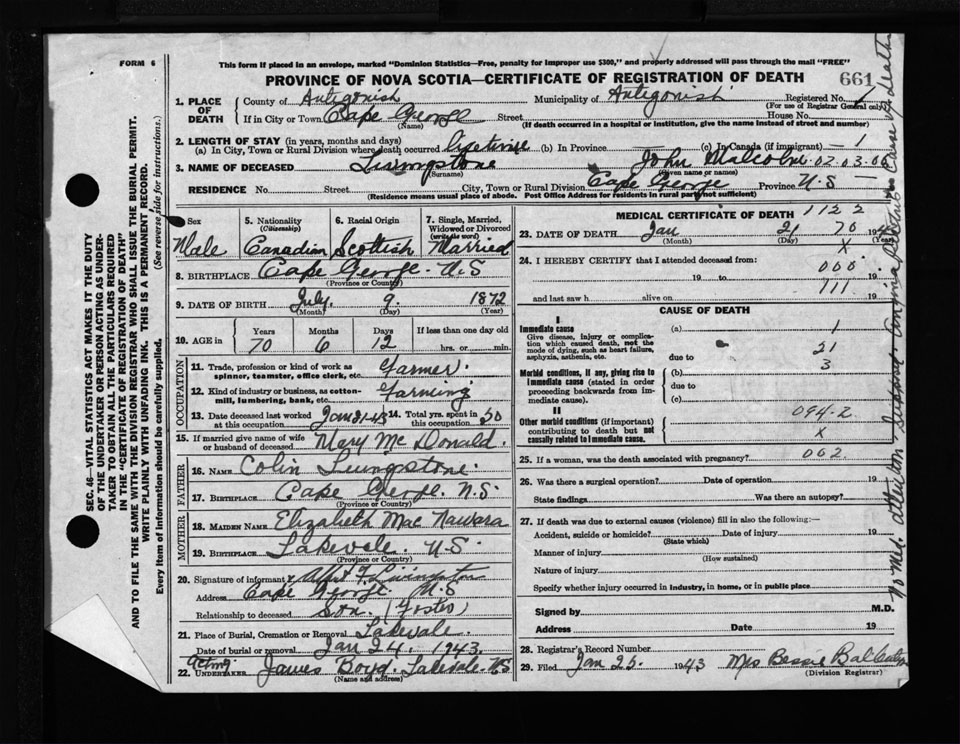 FORM 6
This form if placed in an envelope, marked "Dominion Statistics—Free, penalty for improper use $300," and properly addressed will pass through the mail "FREE"
PROVINCE OF NOVA SCOTIA—CERTIFICATE OF REGISTRATION OF DEATH
661
1. PLACE OF DEATH County of Antigonish Municipality of Antigonish Registered No. 1
(For use of Registrar General only)
If in City or Town Cape George Street House No.
(Name) (If death occurred in a hospital or institution, give the name instead of street and number)
2. LENGTH OF STAY (in years, months and days)
(a) In City, Town or Rural Division where death occurred lifetime (b) In Province — (c) In Canada (if immigrant) — 1
3. NAME OF DECEASED Livingstone John Malcolm 02.03.06
(Surname) (Given name or names)
RESIDENCE No. Street City, Town or Rural Division Cape George Province N.S — 1
(Residence means usual place of abode. Post Office Address for residents in rural parts not sufficient)
4. Sex Male
5. Nationality (Citizenship) Canadian
6. Racial Origin Scottish
7. Single, Married, Widowed or Divorced (write the word) Married
8. BIRTHPLACE Cape George. N.S
(Province or Country)
9. DATE OF BIRTH July 9. 1872
(Month) (Day) (Year)
10. AGE in Years 70 Months 6 Days 12 If less than one day old hrs. or min.
OCCUPATION
11. Trade, profession or kind of work as spinner, teamster, office clerk, etc. Farmer
12. Kind of industry or business, as cotton-mill, lumbering, bank, etc. Farming
13. Date deceased last worked at this occupation Jan 21-43 14. Total yrs. spent in this occupation 50
15. If married give name of wife or husband of deceased Mary Mc Donald.
FATHER
16. NAME Colin Livingstone.
17. BIRTHPLACE Cape George. N.S.
(Province or Country)
MOTHER
18. MAIDEN NAME Elizabeth Mac Nawara
19. BIRTHPLACE Lakevale. N.S
(Province or Country)
20. Signature of informant x F. Livingston
Address Cape George. N.S
Relationship to deceased Son. (Foster)
21. Place of Burial, Cremation or Removal Lakevale.
Date of burial or removal Jan 24. 1943.
22. Acting UNDERTAKER James Boyd. Lakevale. N.S
(Name and address)
MEDICAL CERTIFICATE OF DEATH 1122
23. DATE OF DEATH Jan 21 70 194
(Month) (Day) (Year)
x
24. I HEREBY CERTIFY that I attended deceased from:
000
19 to 19
111
and last saw h alive on 19
CAUSE OF DEATH
I
Immediate cause (a) 1
Give disease, injury or complication which caused death, not the mode of dying, such as heart failure, asphyxia, asthenia, etc.
due to 21
3
Morbid conditions, if any, giving rise to immediate cause (stated in order proceeding backwards from immediate cause).
(b)
due to
(c)
II
094-2
Other morbid conditions (if important) contributing to death but not causally related to immediate cause.
x
25. If a woman, was the death associated with pregnancy? 002.
26. Was there a surgical operation? Date of operation 19
State findings Was there an autopsy?
27. If death was due to external causes (violence) fill in also the following:—
Accident, suicide or homicide? Date of injury 19
(State which)
Manner of injury
(How sustained)
Nature of injury
Specify whether injury occurred in industry, in home, or in public place
Signed by M.D.
Address Date 19
28. Registrar's Record Number
29. Filed Jan 25. 1943 Mrs Bessie
(Division Registrar)
SEC. 46—VITAL STATISTICS ACT MAKES IT THE DUTY OF THE UNDERTAKER OR PERSON ACTING AS UNDERTAKER TO OBTAIN ALL THE PARTICULARS REQUIRED IN THE "CERTIFICATE OF REGISTRATION OF DEATH" AND TO FILE THE SAME WITH THE DIVISION REGISTRAR WHO SHALL ISSUE THE BURIAL PERMIT.
WRITE PLAINLY WITH UNFADING INK. THIS IS A PERMANENT RECORD.
Every item of information should be carefully supplied. (See reverse side for instructions.)
No Md. attention Suppose Angina Cause of Death